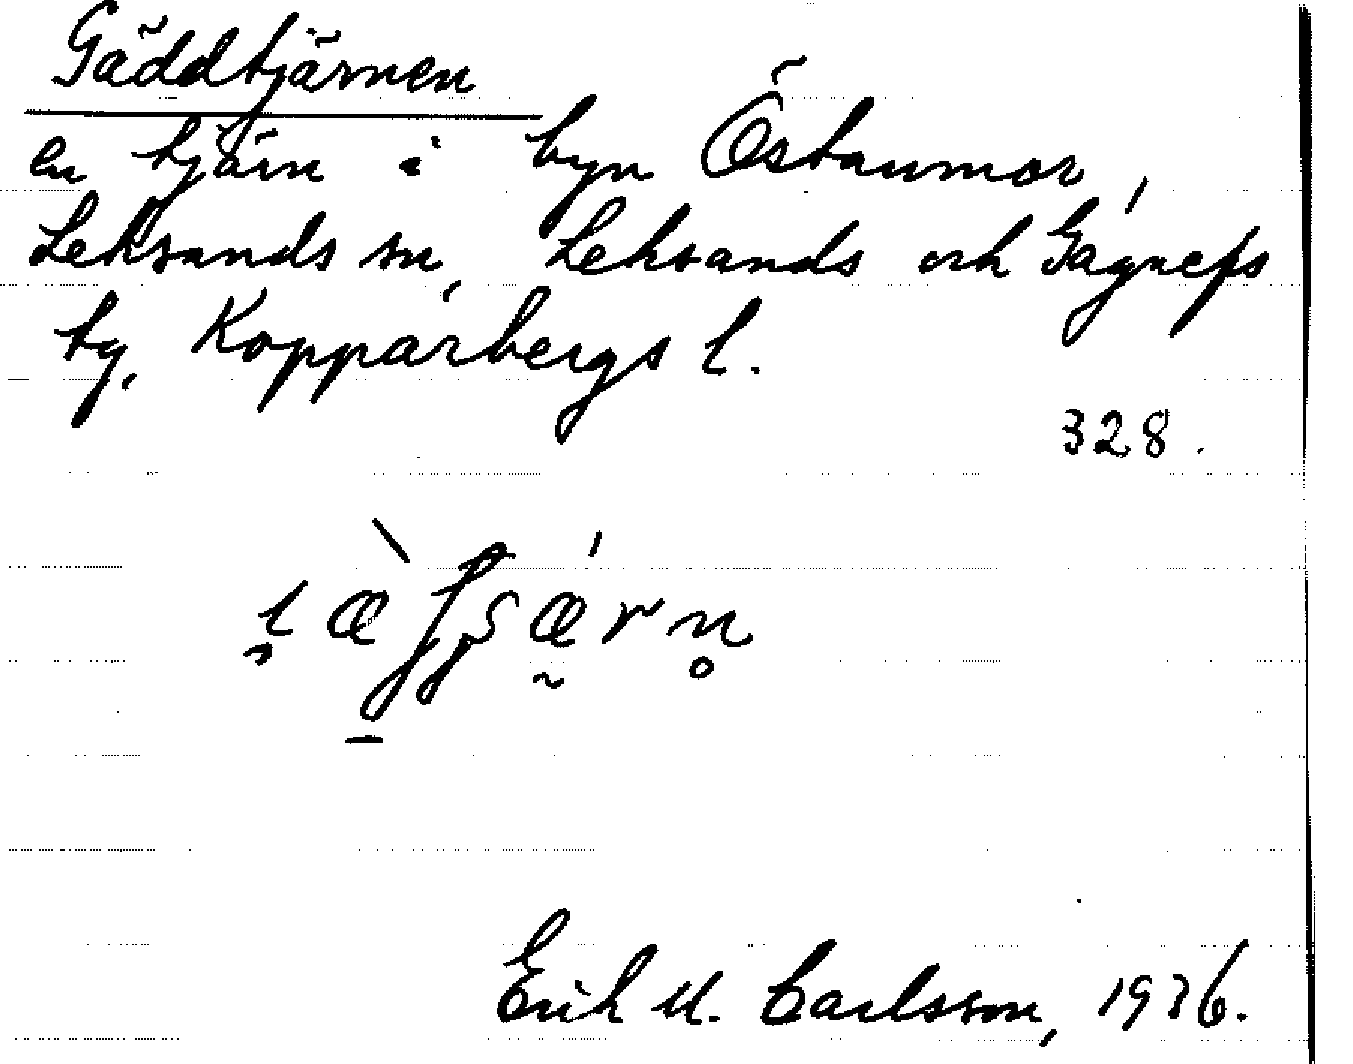 Gäddtjärnen
en tjärn i byn Östanmor,
Leksands sn, Leksands och Gagnefs
tg, Kopparbergs l.
328.
Erik M. Carlsson, 1936.